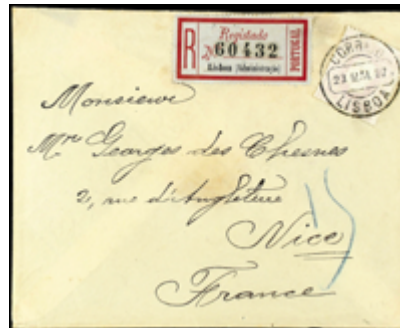 R
Registado
Nº 60432
Lisboa (Administração)
PORTUGAL
CORREIO
LISBOA
Monsieur
Mr Georges des Chesnes
2, rue d'Angleterre
Nice
France